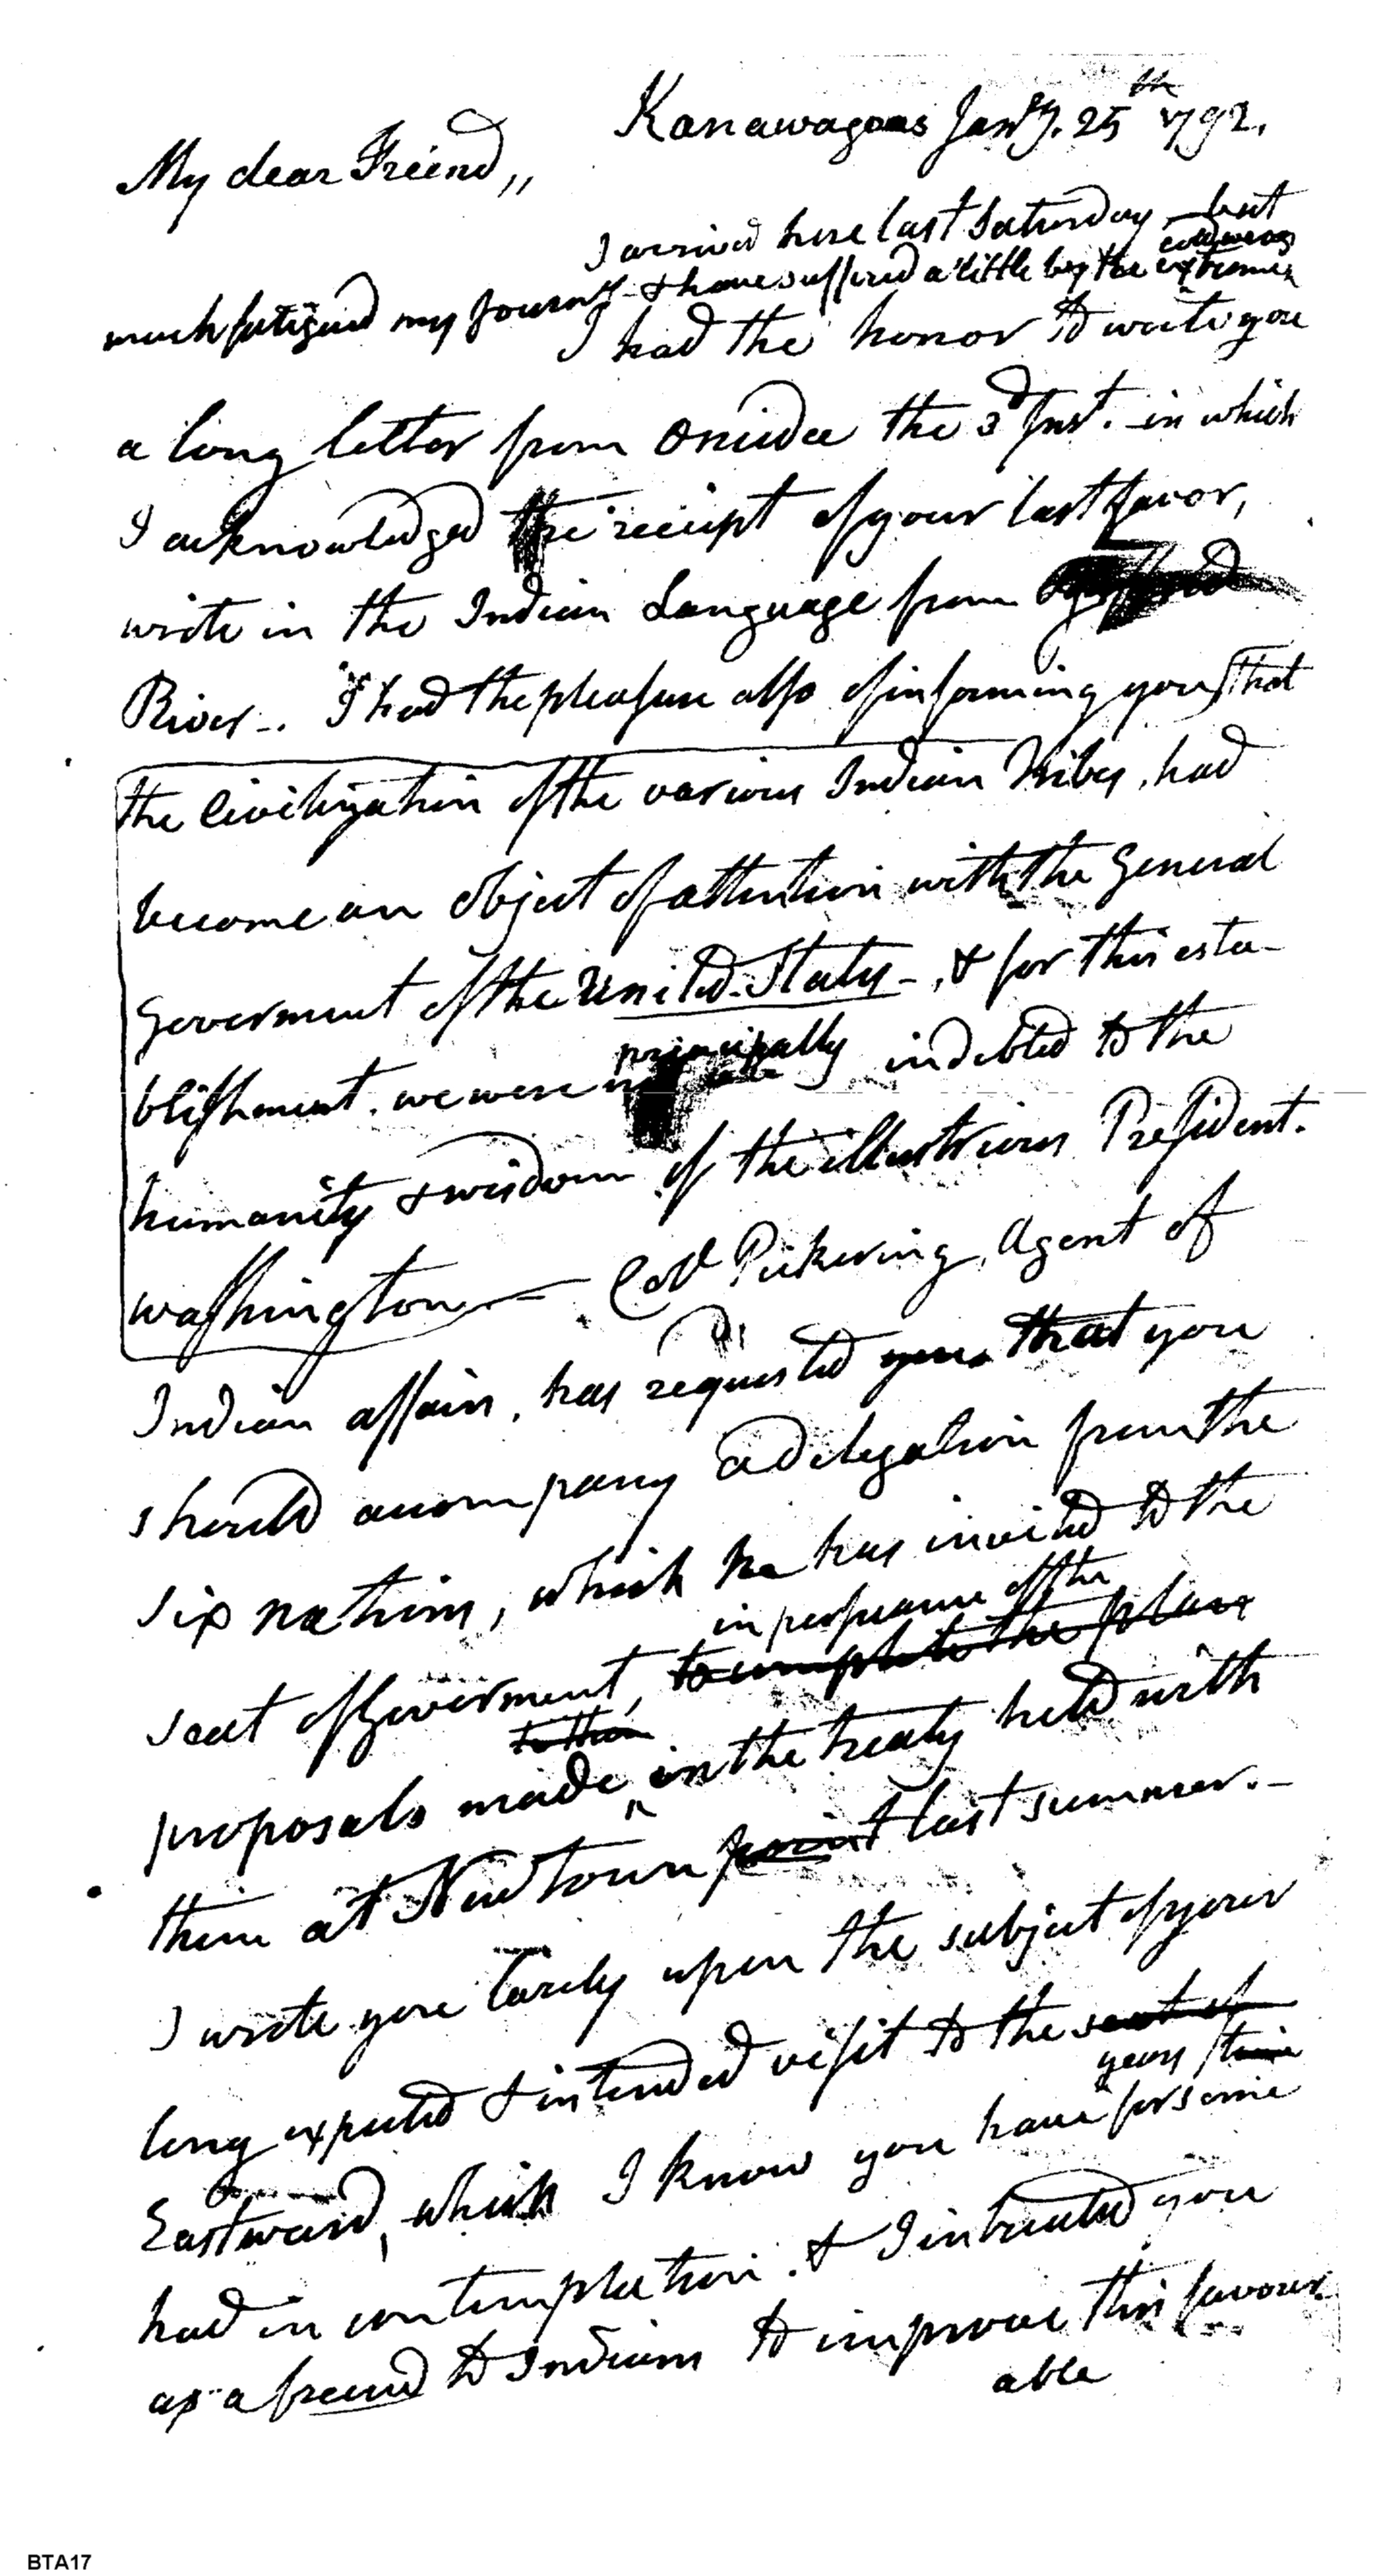 Kanawagoras Jan'y. 25th 1792.
My dear Friend,,
I arrived here last Saturday – but
much fatigued my Journy – & have suffired a little by the extreme
cold weas
I had the honor to write you
a long letter from Oniidee the 3d Inst. in which
I acknowledged the receipt of your last favor,
wrote in the Indian Language from
River –. I had the pleasure also of informing you that
the Civilization of the various Indian Tribes, had
become an object of attention with the General
Goverment of the United States –, & for this esta-
blishment. we were principally indebted to the
humanity & wisdom of the illustrious President.
Washington — Col Pickering, Agent of
Indian affairs, has requested you that you
should accompany a delegation from the
six nations, which he has invited to the
in persuance of the
seat of Goverment, to complete the plan
to them
proposals made in the treaty held with
them at Newtown point last summer. –
I wrote you larily upon the subject of your
long expected & intended visit to the seat of
years time
Eastward, which I know you have for some
had in contemplation. & I intreated you
as a freind to Indians to improve this favour
able
BTA17